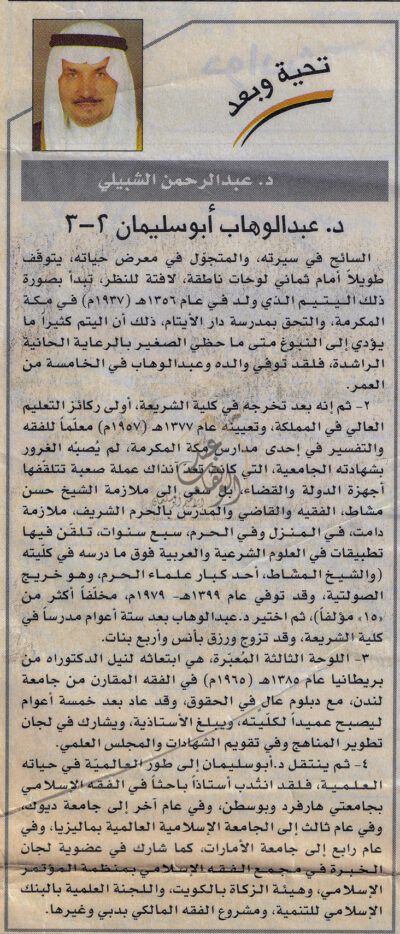 تحية وبعد
د. عبدالرحمن الشبيلي
د. عبدالوهاب أبوسليمان ٢-٣
السائح في سيرته، والمتجوّل في معرض حياته، يتوقف
طويلاً أمام ثماني لوحات ناطقة، لافتة للنظر، تبدأ بصورة
ذلك اليتيم الذي ولد في عام ١٣٥٦هـ (١٩٣٧م) في مكة
المكرمة، والتحق بمدرسة دار الأيتام، ذلك أن اليتم كثيراً ما
يؤدي إلى النبوغ متى ما حظي الصغير بالرعاية الحانية
الراشدة، فلقد توفي والده وعبدالوهاب في الخامسة من
العمر.
٢- ثم إنه بعد تخرجه في كلية الشريعة، أولى ركائز التعليم
العالي في المملكة، وتعيينه عام ١٣٧٧هـ (١٩٥٧م) معلّماً للفقه
والتفسير في إحدى مدارس مكة المكرمة، لم يُصبْه الغرور
بشهادته الجامعية، التي كانت تعدّ آنذاك عملة صعبة تتلقفها
أجهزة الدولة والقضاء، بل سعى إلى ملازمة الشيخ حسن
مشاط، الفقيه والقاضي والمدرّس بالحرم الشريف، ملازمة
دامت، في المنزل وفي الحرم، سبع سنوات، تلقّن فيها
تطبيقات في العلوم الشرعية والعربية فوق ما درسه في كلّيته
(والشيخ المشّاط، أحد كبار علماء الحرم، وهو خريج
الصولتية، وقد توفي عام ١٣٩٩هـ- ١٩٧٩م، مخلّفاً أكثر من
«١٥» مؤلفاً)، ثم اختير د.عبدالوهاب بعد ستة أعوام مدرساً في
كلية الشريعة، وقد تزوج ورزق بأنس وأربع بنات.
٣- اللوحة الثالثة المُعبّرة، هي ابتعاثه لنيل الدكتوراه من
بريطانيا عام ١٣٨٥هـ (١٩٦٥م) في الفقه المقارن من جامعة
لندن، مع دبلوم عال في الحقوق، وقد عاد بعد خمسة أعوام
ليصبح عميداً لكلّيته، ويبلغ الأستاذية، ويشارك في لجان
تطوير المناهج وفي تقويم الشهادات والمجلس العلمي.
٤- ثم ينتقل د.أبوسليمان إلى طور العالميّة في حياته
العلمية، فلقد انتُدب أستاذاً باحثاً في الفقه الإسلامي
بجامعتي هارفرد وبوسطن، وفي عام آخر إلى جامعة ديوك،
وفي عام ثالث إلى الجامعة الإسلامية العالمية بماليزيا، وفي
عام رابع إلى جامعة الأمارات، كما شارك في عضوية لجان
الخبرة في مجمع الفقه الإسلامي بمنظمة المؤتمر
الإسلامي، وهيئة الزكاة بالكويت، واللجنة العلمية بالبنك
الإسلامي للتنمية، ومشروع الفقه المالكي بدبي وغيرها.